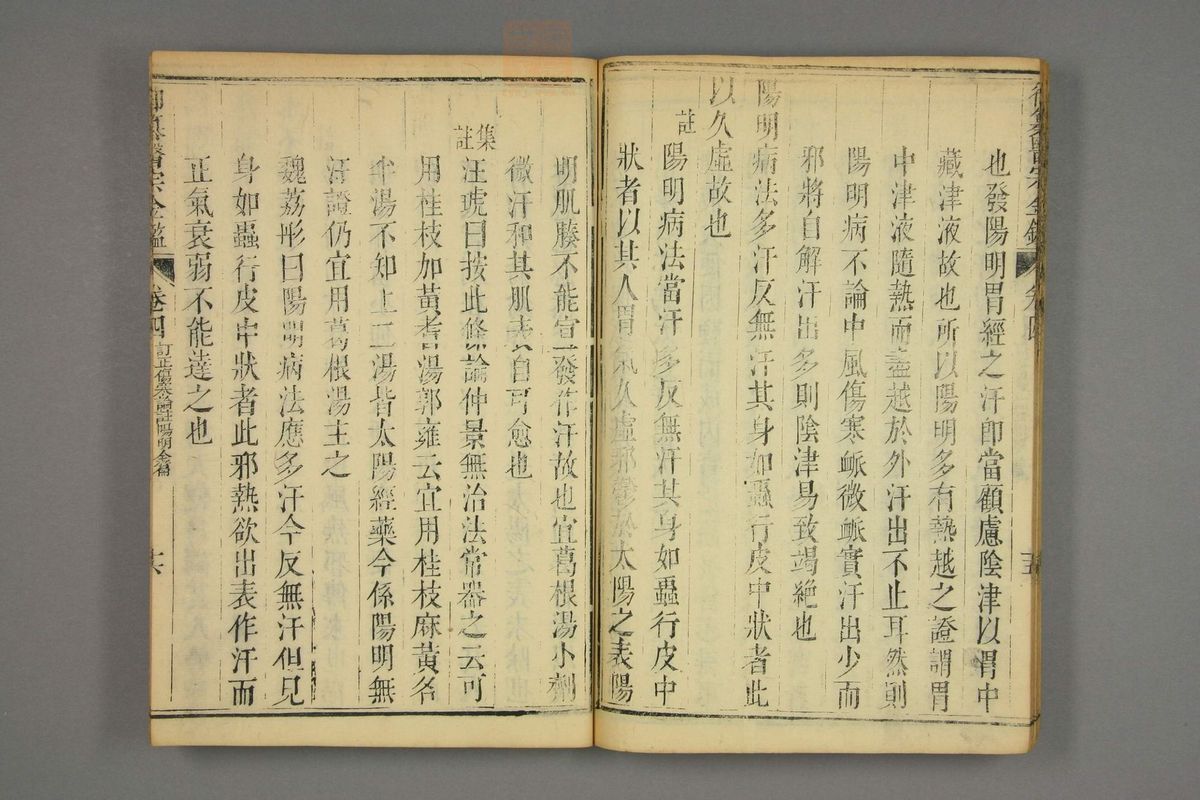 也發陽明胃經之汗卽當顧慮陰津以胃中
藏津液故也所以陽明多有熱越之證謂胃
中津液隨熱而盡越於外汗出不止耳然則
陽明病不論中風傷寒脈微脈實汗出少而
邪將自解汗出多則陰津易致竭絶也
陽明病法多汗反無汗其身如蟲行皮中狀者此
以久虛故也
註 陽明病法當汗多反無汗其身如蟲行皮中
狀者以其人胃氣久虛邪鬱於太陽之表陽
明肌腠不能宣發作汗故也宜葛根湯小劑
微汗和其肌表自可愈也
集註 汪琥曰按此條論仲景無治法常器之云可
用桂枝加黃耆湯郭雍云宜用桂枝麻黃各
半湯不知上二湯皆太陽經藥今係陽明無
汗證仍宜用葛根湯主之
魏荔彤曰陽明病法應多汗今反無汗但見
身如蟲行皮中狀者此邪熱欲出表作汗而
正氣衰弱不能達之也
御纂醫宗金鑑 卷四 訂正傷寒論註陽明全篇 六